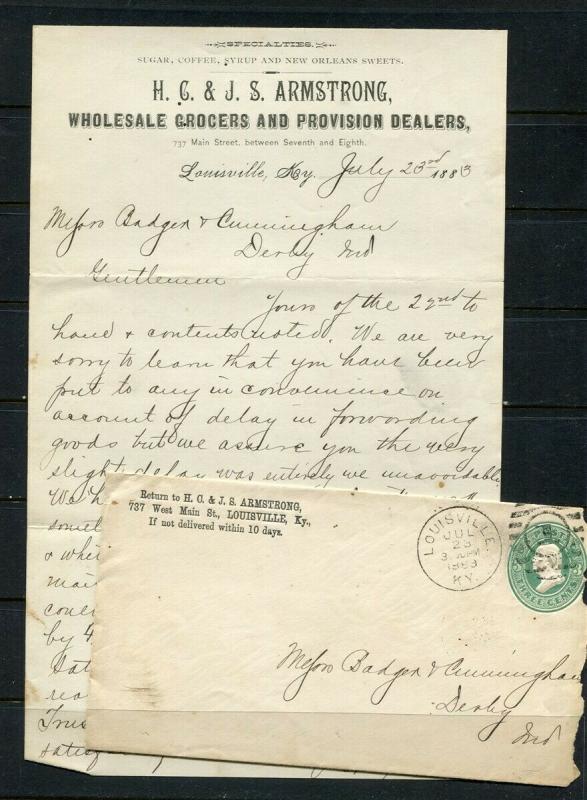 SPECIALTIES.
SUGAR, COFFEE, SYRUP AND NEW ORLEANS SWEETS.
H. C. & J. S. ARMSTRONG,
WHOLESALE GROCERS AND PROVISION DEALERS,
737 Main Street, between Seventh and Eighth.
Louisville, Ky. July 23rd 1883
Messrs Badger & Cunningham
Derby Ind
Gentlemen
Yours of the 22nd to
hand & contents noted. We are very
sorry to learn that you have been
put to any in convenience on
account of delay in forwarding
goods but we assure you the very
slight delay was entirely we unavoidably
We h
somet
& whe
mai
conve
by 4
Sat
rea
Trus
satis
Return to H. C. & J. S. ARMSTRONG,
737 West Main St., LOUISVILLE, Ky.,
If not delivered within 10 days.
LOUISVILLE
JUL
23
3 PM
1883
KY.
THREE CENTS
Messrs Badger & Cunningham
Derby
Ind